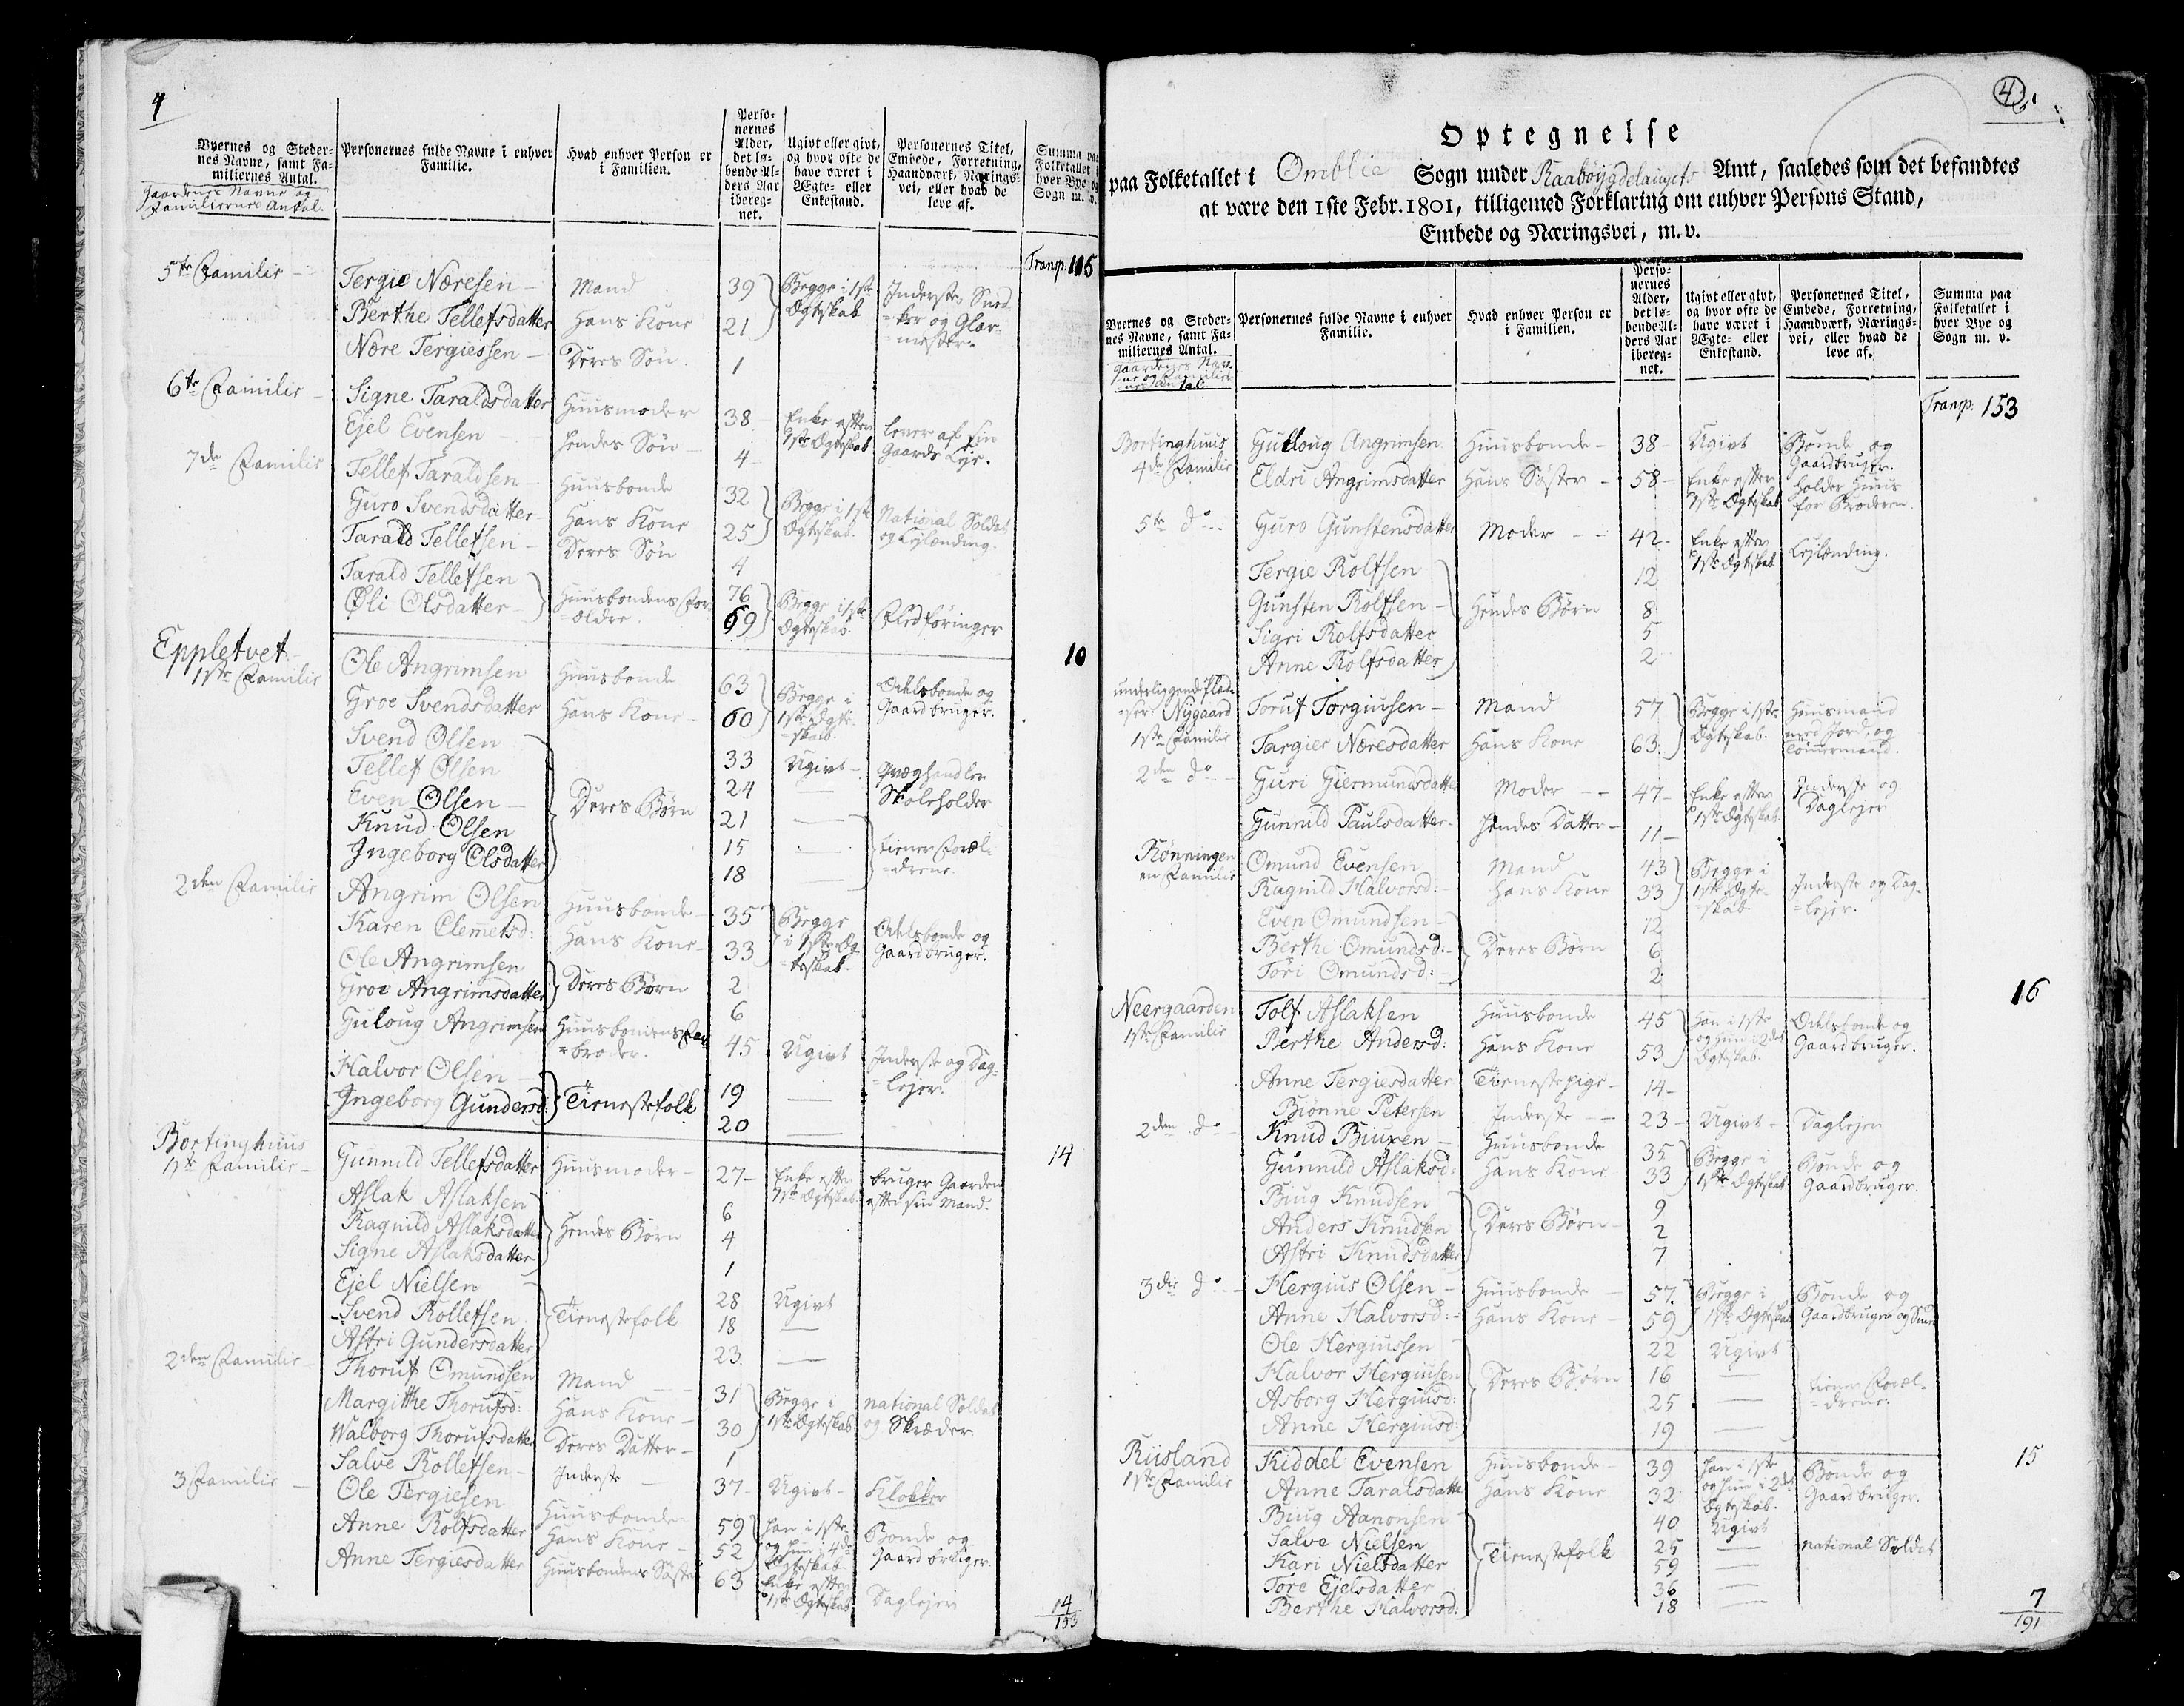 4
Byernes og Steder-
nes Navne, samt Fa-
miliernes Antal.
Gaardenes Navne og
Familiernes Antal.
Personernes fulde Navne i enhver
Familie.
Hvad enhver Person er
i Familien.
Perso-
nernes
Alder,
det lø-
bende Al-
ders Aar
ibereg-
net.
Ugivt eller givt,
og hvor ofte de
have været i
Ægte- eller
Enkestand.
Personernes Titel,
Embede, Forretning,
Haandværk, Nærings-
vei, eller hvad de
leve af.
Summa paa
Folketallet i
hver Bye og
Sogn m. v.
Transp: 105
5te Familie Tergie Næresen Mand 39 Begge i 1ste Ægteskab Inderste, Sned-ker og Glar-mester.
Berthe Tellefsdatter Hans Kone 21
Nære Tergiessen Deres Søn 1
6te Familie Signe Taraldsdatter Huusmoder 38 Enke efter 1ste Ægteskab Lever af sin Gaards Leje.
Ejel Evensen Hendes Søn 4
7de Familie Tellef Taraldsen Huusbonde 32 Begge i 1ste Ægteskab. National Soldat og Lejlænding.
Guro Svendsdatter Hans Kone 25
Tarald Tellefsen Deres Søn 4
Tarald Tellefsen Huusbondens For-ældre. 76 Begge i 1ste Ægteskab. Fledføringer
Øli Olsdatter 69
10
Eppletvet
1ste Familie Ole Angrimsen Huusbonde 63 Begge i 1ste Ægte-skab. Odelsbonde og Gaardbruger.
Groe Svendsdatter Hans Kone 60
Svend Olsen Deres Børn 33 Ugivt Qvæghandler
Tellef Olsen 24 — Skoleholder
Even Olsen 21 — tiener Foræl-drene.
Knud Olsen 15 —
Ingeborg Olsdatter 18 —
2den Familie Angrim Olsen Huusbonde 35 Begge i 1ste Æg-teskab. Odelsbonde og Gaardbruger.
Karen Clemetsd: Hans Kone 33
Ole Angrimsen Deres Børn 2
Groe Angrimsdatter 6
Guloug Angrimsen Huusbondens Far-broder. 45 Ugivt Inderste og Dag-lejer.
Halvor Olsen Tienestefolk 19 —
Ingeborg Gundersd: 20 —
14
Bortinghuus
1ste Familie Gunnild Tellefsdatter Huusmoder 27 Enke efter 1ste Ægteskab bruger Gaarden efter sin Mand.
Aslak Aslaksen Hendes Børn 6
Ragnild Aslaksdatter 4
Signe Aslaksdatter 1
Ejel Nielsen Tienestefolk 28 Ugivt
Svend Rollefsen 18 —
Astri Gundersdatter 23 —
2den Familie Thoruf Omundsen Mand 31 Begge i 1ste Ægteskab national Soldat og Skræder.
Margitthe Thorufsd: Hans Kone 30
Walborg Thorufsdatter Deres Datter 1
Salve Rollefsen Inderste 37 Ugivt Klokker
3 Familie Ole Tergiesen Huusbonde 59 han i 1ste og hun i 4de Ægteskab. Bonde og Gaardbruger.
Anne Rolfsdatter Hans Kone 52
Anne Tergiesdatter Huusbondens Søster 63 Enke efter 1ste Ægteskab Daglejer
14
153
4
Optegnelse
paa Folketallet i Omblie Sogn under Raabøygdelaugets Amt, saaledes som det befandtes
at være den 1ste Febr. 1801, tilligemed Forklaring om enhver Persons Stand,
Embede og Næringsvei, m. v.
Byernes og Steder-
nes Navne, samt Fa-
miliernes Antal.
Gaardenes Nav-
ne og Familier-
nes Antal.
Personernes fulde Navne i enhver
Familie.
Hvad enhver Person er
i Familien.
Perso-
nernes
Alder,
det lø-
bende Al-
ders Aar
ibereg-
net.
Ugivt eller givt,
og hvor ofte de
have været i
Ægte- eller
Enkestand.
Personernes Titel,
Embede, Forretning,
Haandværk, Nærings-
vei, eller hvad de
leve af.
Summa paa
Folketallet i
hver Bye og
Sogn m. v.
Transp: 153
Bortinghuus
4de Familie Gulloug Angrimsen Huusbonde 38 Ugivt Bonde og Gaardbruger.
Eldri Angrimsdatter Hans Søster 58 Enke efter 1ste Ægteskab holder Huus for Broderen.
5te do Guro Gunstensdatter Moder 42 Enke efter 1ste Ægteskab Lejlænding.
Tergie Rolfsen Hendes Børn 12
Gunsten Rolfsen 8
Sigri Rolfsdatter 5
Anne Rolfsdatter 2
underliggende Plad-
ser: Nygaard
1ste Familie Toruf Torgiusen Mand 57 Begge i 1ste Ægteskab. Huusmand med Jord, og Tømmermand.
Targier Næresdatter Hans Kone 63
2den do Guri Giermundsdatter Moder 47 Enke efter 1ste Ægteskab. Inderste og Daglejer
Gunnild Paulsdatter Hendes Datter 11
Rønningen
en Familie Omund Evensen Mand 43 Begge i 1ste Ægte-skab. Inderste og Dag-lejer.
Ragnild Halvorsd: Hans Kone 33
Even Omundsen Deres Børn 12
Berthe Omundsd: 6
Tori Omundsd: 2
16
Neergaarden
1ste Familie Tolf Aslaksen Huusbonde 45 han i 1ste og hun i 2det Ægteskab. Odelsbonde og Gaardbruger.
Berthe Andersd: Hans Kone 53
Anne Tergiesdatter Tienestepige 14
Biønne Petersen Inderste 23 Ugivt Daglejer
2den do Knud Biuxen Huusbonde 35 Begge i 1ste Ægteskab Bonde og Gaardbruger.
Gunnild Aslaksd: Hans Kone 33
Biug Knudsen Deres Børn 9
Anders Knudsen 2
Astri Knudsdatter 7
3die do Hergius Olsen Huusbonde 57 Begge i 1ste Ægteskab Bonde og Gaardbruger og Smed
Anne Halvorsd: Hans Kone 59
Ole Hergiussen Deres Børn 22 Ugivt tiener Foræl-drene.
Halvor Hergiusen 16 —
Asborg Hergiusd: 25 —
Anne Hergiusd: 19 —
15
Riisland
1ste Familie Kiddel Evensen Huusbonde 39 han i 1ste og hun i 2det Ægteskab. Bonde og Gaardbruger.
Anne Taralsdatter Hans Kone 32
Biug Aanonsen Tienestefolk 40 Ugivt
Salve Nielsen 25 — national Soldat
Kari Nielsdatter 59 —
Tore Ejelsdatter 36 —
Berthe Halvorsd: 18 —
7
191